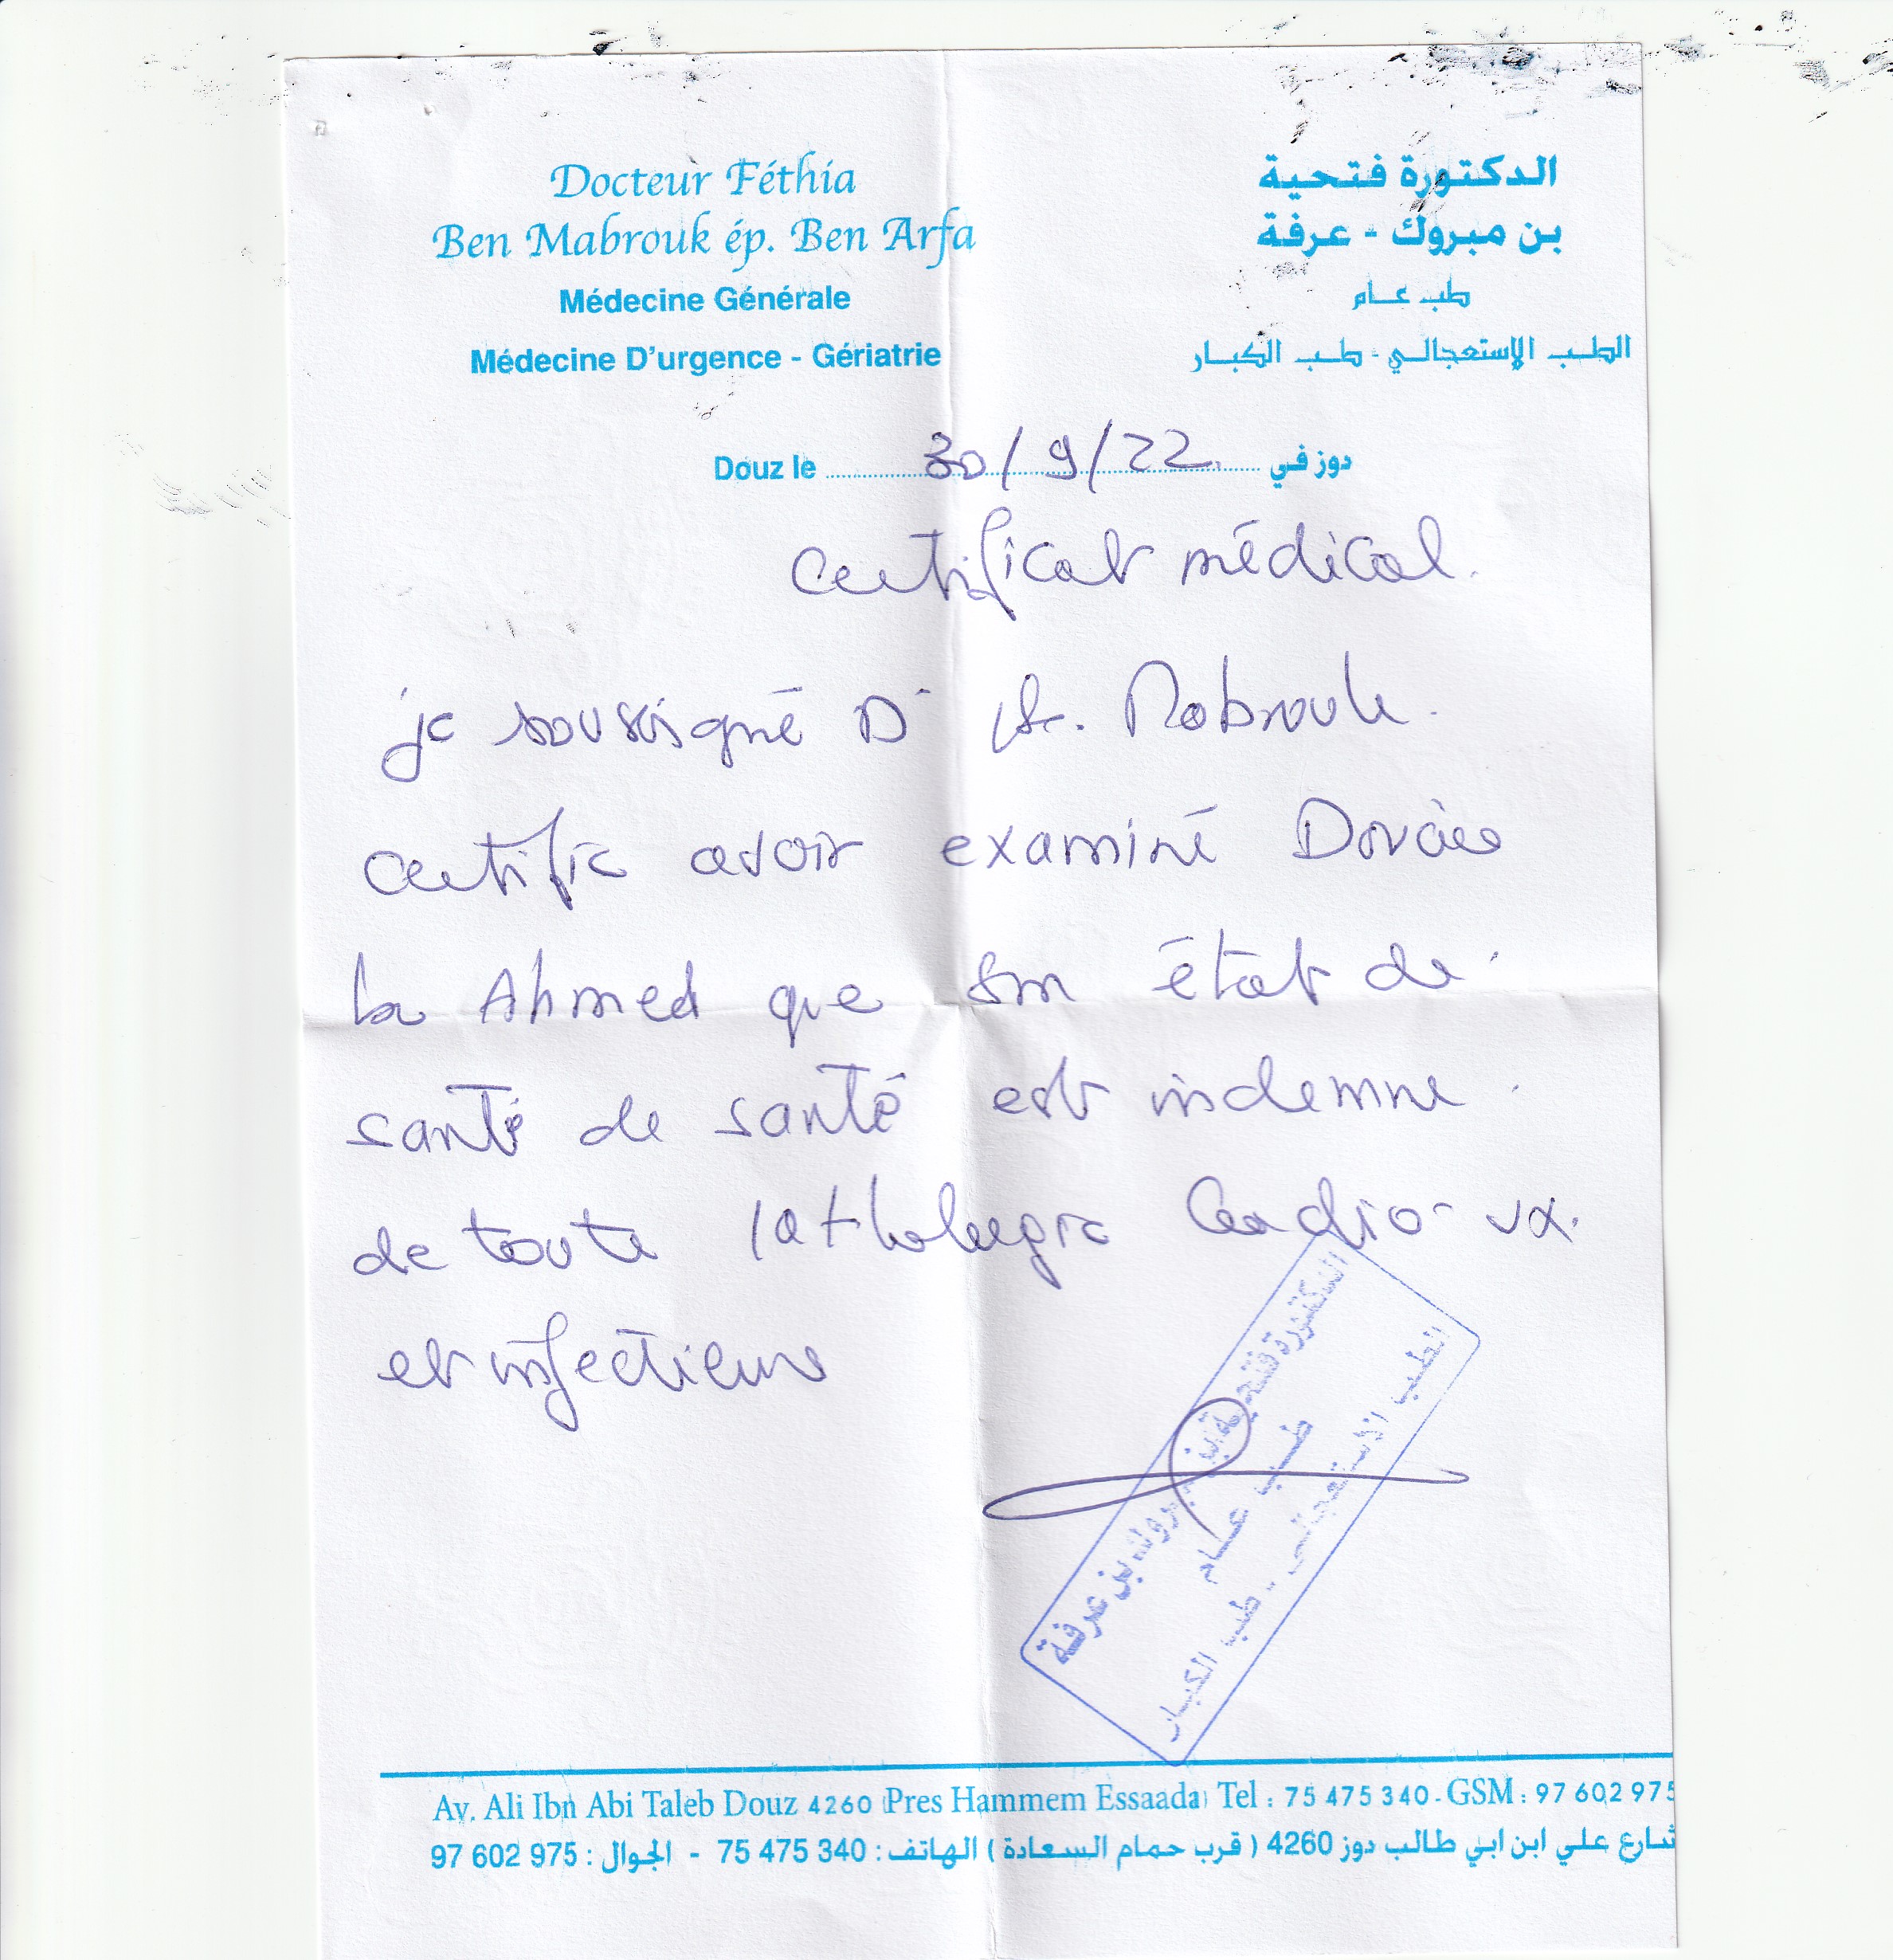 Docteur Féthia
Ben Mabrouk ép. Ben Arfa
Médecine Générale
Médecine D'urgence - Gériatrie
الدكتورة فتحية
بن مبروك - عرفة
طب عام
الطب الإستعجالي - طب الكبار
Douz le 30/9/22 دوز في
Certificat médical.
je soussigné Dr Mabrouk.
certifie avoir examiné
Ahmed que son état de
santé de santé est indemne
de toute pathologie Cardio-vx.
et infectieuse
الدكتورة فتحية بن مبروك بن عرفة
طب عام
الطب الاستعجالي - طب الكبار
Av. Ali Ibn Abi Taleb Douz 4260 (Pres Hammem Essaada) Tel : 75 475 340 - GSM : 97 602 975
شارع علي ابن ابي طالب دوز 4260 ( قرب حمام السعادة ) الهاتف : 340 475 75 - الجوال : 975 602 97